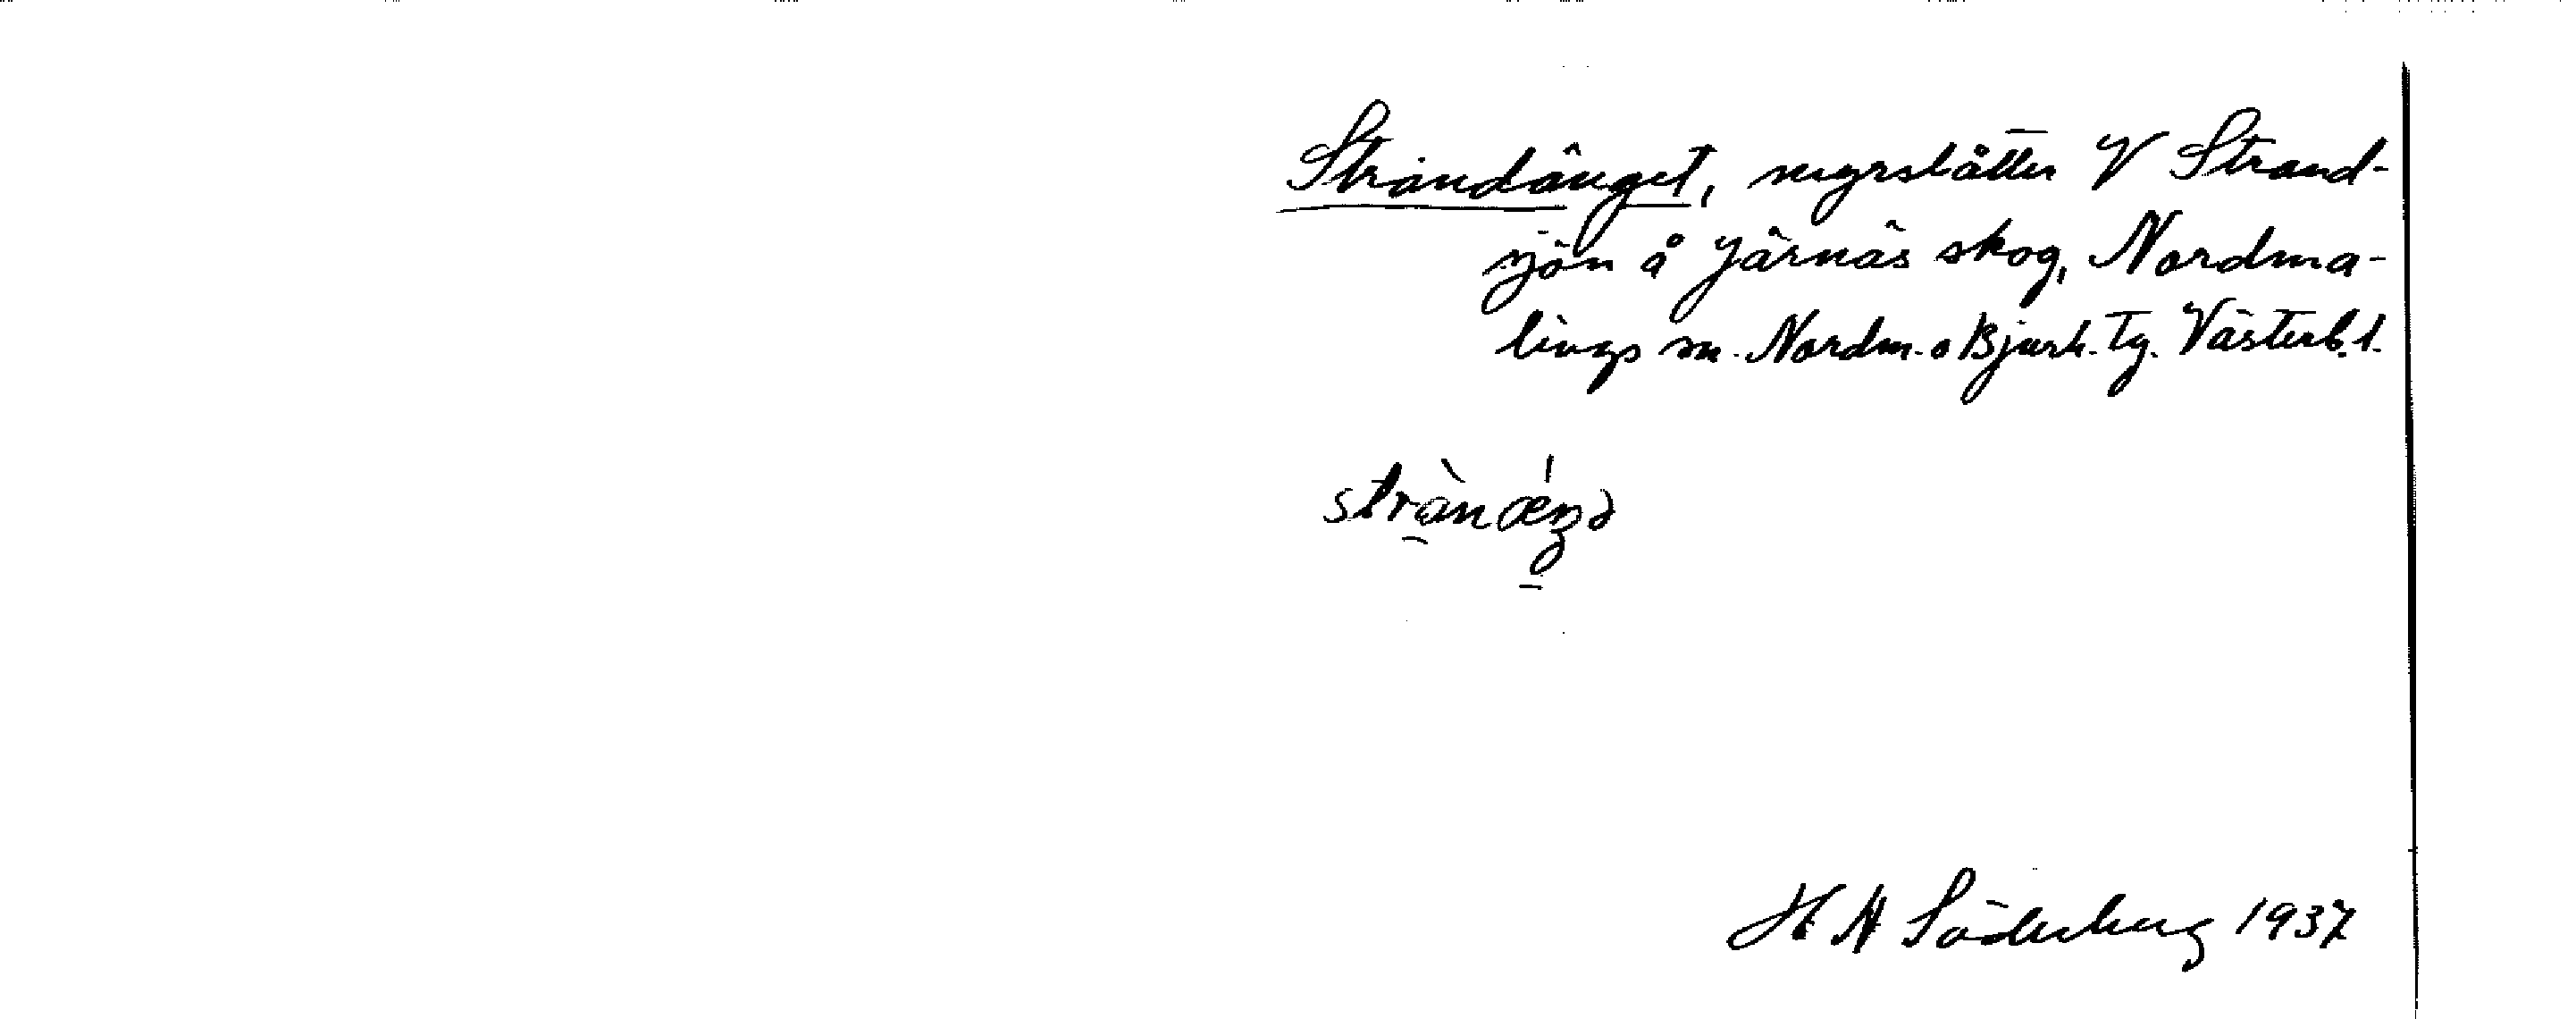 Strandänget, myrslåtter V Strand-
sjön å Järnäs skog, Nordma-
lings sn. Nordm. o Bjurh. Tg. Västerb. l.
strànǽŋə
H N Söderberg 1937